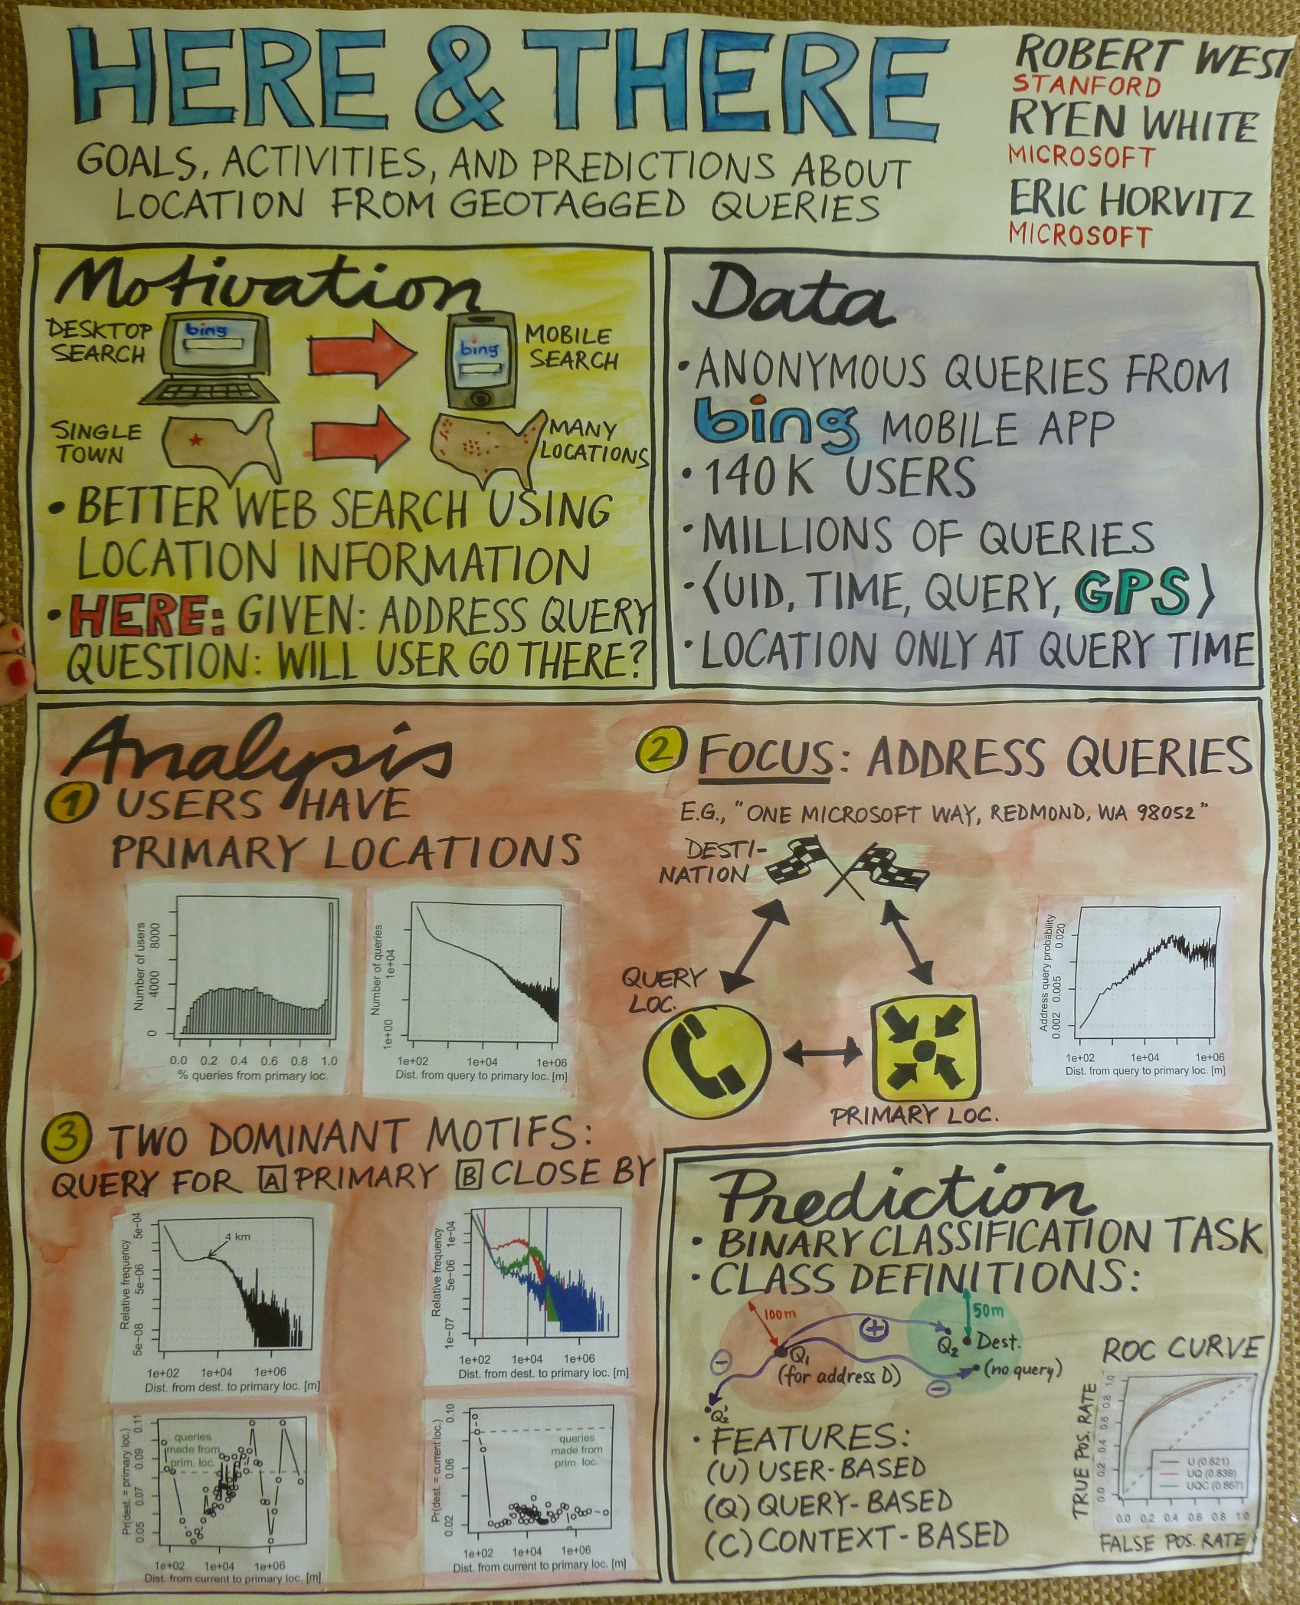 HERE & THERE
GOALS, ACTIVITIES, AND PREDICTIONS ABOUT
LOCATION FROM GEOTAGGED QUERIES
ROBERT WEST
STANFORD
RYEN WHITE
MICROSOFT
ERIC HORVITZ
MICROSOFT
Motivation
DESKTOP
SEARCH
bing
bing
MOBILE
SEARCH
SINGLE
TOWN
MANY
LOCATIONS
• BETTER WEB SEARCH USING
LOCATION INFORMATION
• HERE: GIVEN: ADDRESS QUERY
QUESTION: WILL USER GO THERE?
Data
• ANONYMOUS QUERIES FROM
bing MOBILE APP
• 140K USERS
• MILLIONS OF QUERIES
• ⟨UID, TIME, QUERY, GPS⟩
• LOCATION ONLY AT QUERY TIME
Analysis
1 USERS HAVE
PRIMARY LOCATIONS
Number of users
0 4000 8000
0.0 0.2 0.4 0.6 0.8 1.0
% queries from primary loc.
Number of queries
1e+00 1e+04
1e+02 1e+04 1e+06
Dist. from query to primary loc. [m]
2 FOCUS: ADDRESS QUERIES
E.G., "ONE MICROSOFT WAY, REDMOND, WA 98052"
DESTI-
NATION
QUERY
LOC.
PRIMARY LOC.
Address query probability
0.002 0.005 0.020
1e+02 1e+04 1e+06
Dist. from query to primary loc. [m]
3 TWO DOMINANT MOTIFS:
QUERY FOR A PRIMARY B CLOSE BY
Relative frequency
5e-08 5e-06 5e-04
4 km
1e+02 1e+04 1e+06
Dist. from dest. to primary loc. [m]
Relative frequency
1e-07 5e-06 1e-04
1e+02 1e+04 1e+06
Dist. from dest. to primary loc. [m]
Pr(dest. = primary loc.)
0.05 0.07 0.09 0.11
queries
made from
prim. loc.
1e+02 1e+04 1e+06
Dist. from current to primary loc. [m]
Pr(dest. = current loc.)
0.02 0.06 0.10
queries
made from
prim. loc.
1e+02 1e+04 1e+06
Dist. from current to primary loc. [m]
Prediction
• BINARY CLASSIFICATION TASK
• CLASS DEFINITIONS:
100m
50m
+
Q₂ Dest.
Q₁
(for address D)
(no query)
−
−
Q₂'
• FEATURES:
(U) USER-BASED
(Q) QUERY-BASED
(C) CONTEXT-BASED
ROC CURVE
TRUE POS. RATE
0.0 0.2 0.4 0.6 0.8 1.0
U (0.821)
UQ (0.839)
UQC (0.867)
0.0 0.2 0.4 0.6 0.8 1.0
FALSE POS. RATE